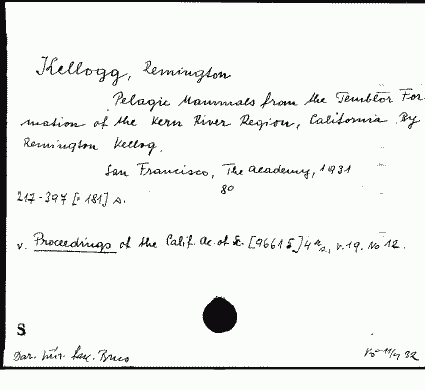 Kellogg, Remington
Pelagic Mammals from the Temblor For-
mation of the Kern River Region, California By
Remington Kellog.
San Francisco, The Academy, 1931
80
217-397 [=181] s.
v. Proceedings of the Calif. Ac. of Sc. [96615] 4 v. 19. No 12.
S
Dar. Bruo
32